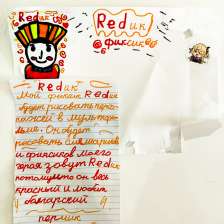 Redик
Redик
фиксик
Redик
Мой фиксик Redик
будет рисовать персо-
нажей в мультфи-
льме. Он будет
рисовать симпатиков
и фиксиков. Моего
героя зовут Redик
потому што он весь
красный и любит
болгарский
перчик